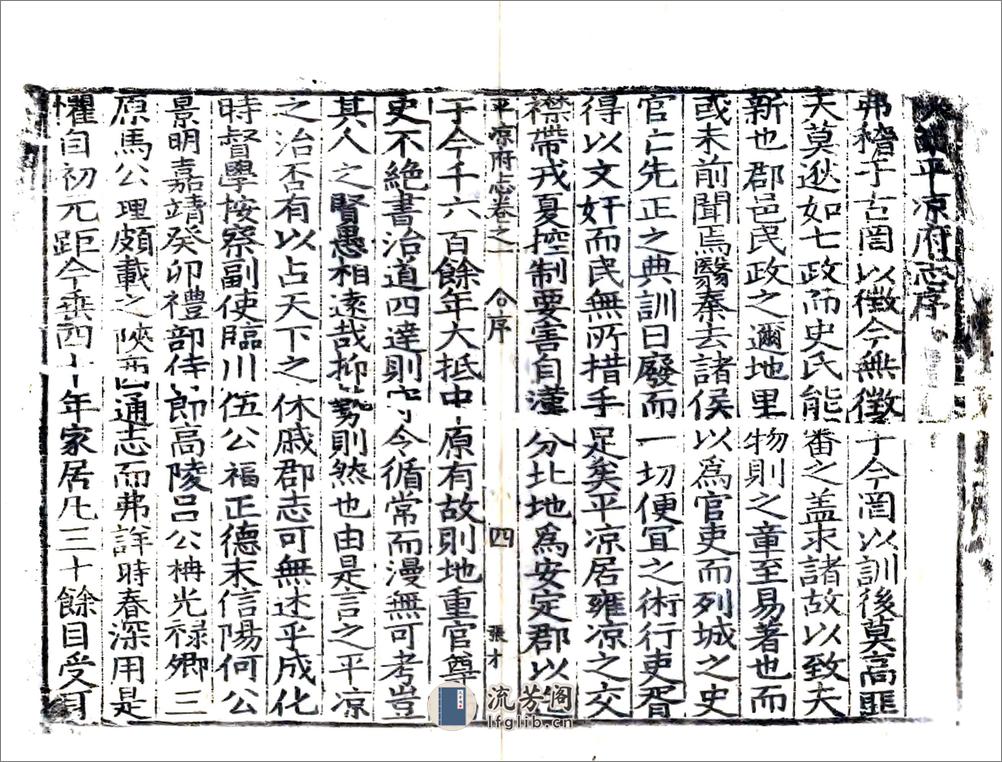 平凉府志序
弗稽于古罔以徵今無徵于今罔以訓後莫高匪
天莫逖如七政而史氏能審之盖求諸故以致夫
新也郡邑民政之邇地里物則之章至易著也而
或未前聞焉翳秦去諸侯以爲官吏而列城之史
官亡先正之典訓日廢而一切便宜之術行吏胥
得以文奸而民無所措手足矣平凉居雍凉之交
襟帶戎夏控制要害自漢分北地爲安定郡以
平凉府志卷之一 序 四 張才
于今千六百餘年大抵中原有故則地重官尊
史不絶書治道四達則守令循常而漫無可考豈
其人之賢愚相遠哉抑勢則然也由是言之平凉
之治否有以占天下之休戚郡志可無述乎成化
時督學按察副使臨川伍公福正德末信陽何公
景明嘉靖癸卯禮部侍郎高陵呂公柟光禄卿三
原馬公理頗載之陝西通志而弗詳時春深用是
懼自初元距今垂四十年家居凡三十餘目受耳
流芳阁
lfglib.cn